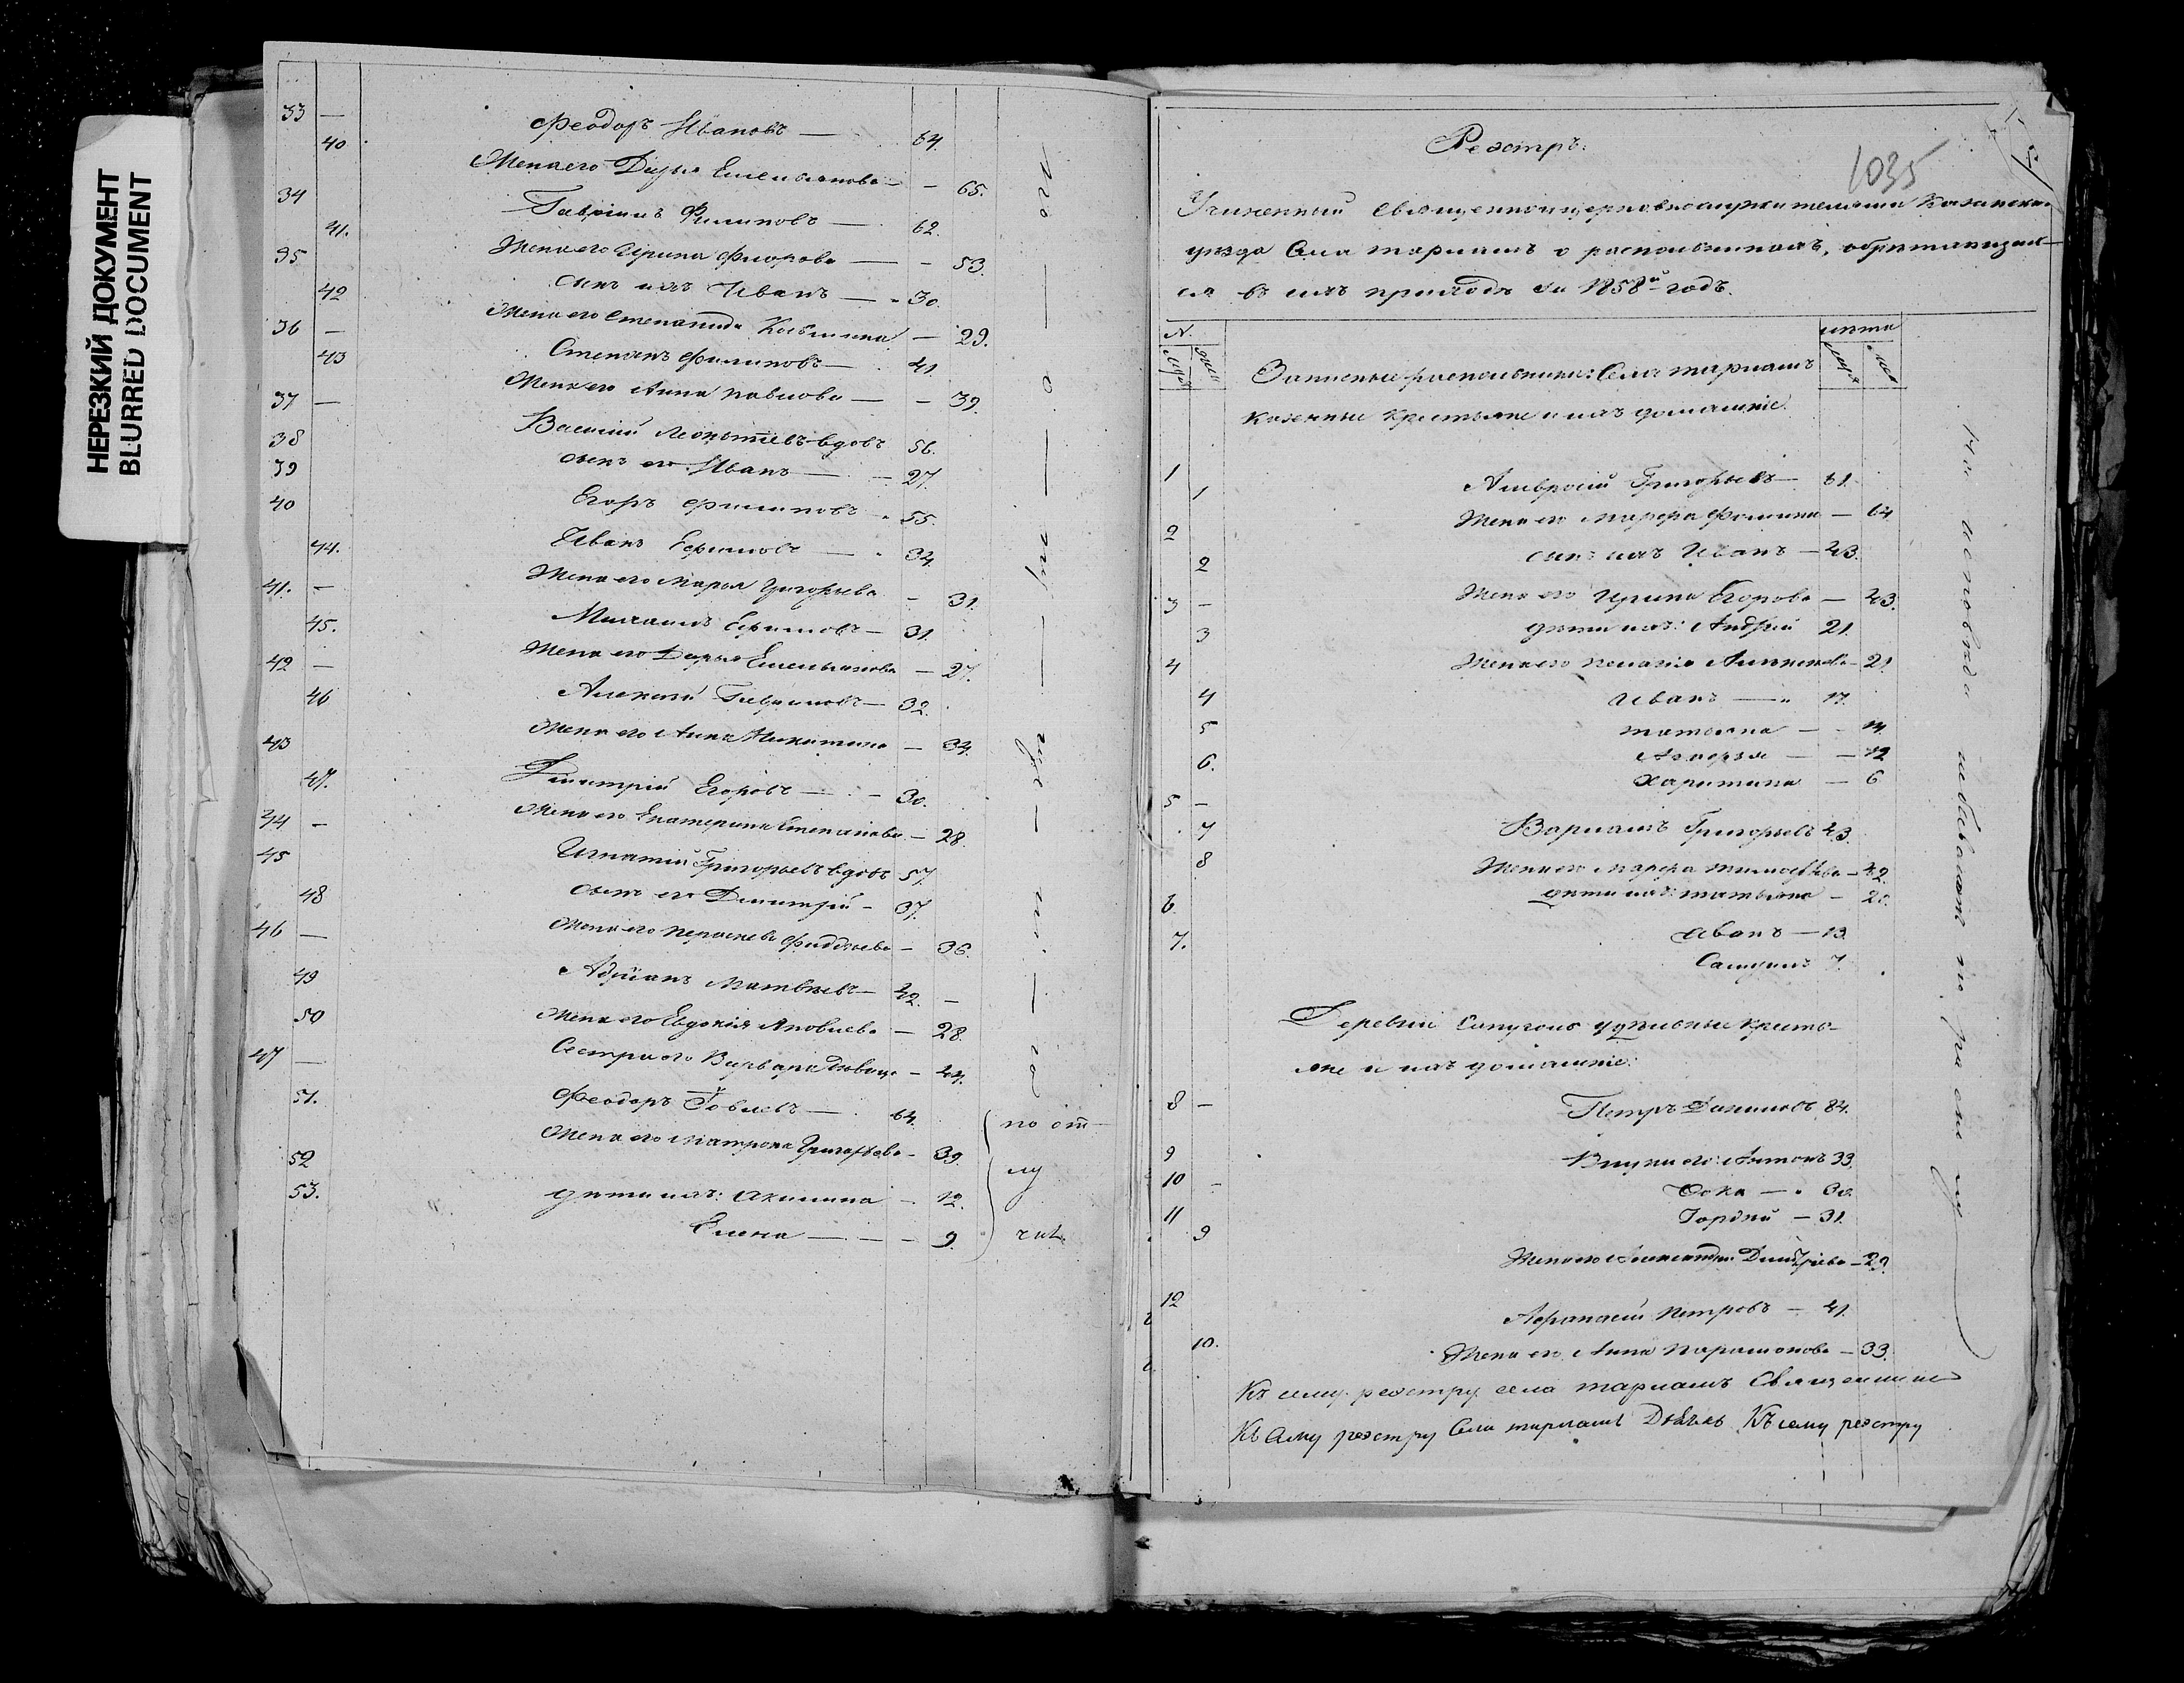 НЕРЕЗКИЙ ДОКУМЕНТ
BLURRED DOCUMENT
33 — Феодоръ Ивановъ — 64.
40 Жена его Дарья Емельянова — 65.
34 Гавріилъ Филиповъ — 62.
41. Жена его Ирина Флорова — 53.
35 сынъ ихъ Иванъ — 30.
42 Жена его Степанида — 29.
36 — Степанъ Филиповъ — 41.
43 Жена его Анна Павлова — 39.
37 — Василій Леонтіевъ вдовъ 56.
38 сынъ его Иванъ — 27.
39 Егоръ Филиповъ 55.
40 Иванъ Ефимовъ — 34.
44. Жена его Марья Григорьева — 31.
41. — Михаилъ Ефимовъ — 31.
45. Жена его Дарья Емельянова — 27.
42 — Алексѣй Гавриловъ — 32.
46 Жена его Анна Никитина — 34.
43 Дмитрій Егоровъ — 30.
47. Жена его Екатерина Степанова — 28.
44 — Игнатій Григорьевъ вдовъ 57.
45 сынъ его Димитрій — 37.
48 Жена его Фаддѣева — 36.
46 — Адріанъ Матвѣевъ — 42. —
49 Жена его Евдокія Яковлева — 28.
50 Сестра его Варвара — 44.
47 — Феодоръ 64.
51. Жена его Матрона Григорьева — 39.
52 дѣти ихъ: Акилина — 12.
53. Елена — 9.
по от
лу
Реэстръ.
1035
Учиненный священноицерковнослужителями Казанскаго
уѣзда Села о раскольникахъ, обрѣтающих
ся въ ихъ приходѣ за 1858й годъ.
N. лѣта
Записные раскольники: Села
казенные крестьяне и ихъ домашніе.
1 Амвросій Григорьевъ — 61.
1 Жена его Марфа Фомина — 64
2 сынъ ихъ Иванъ — 43.
2 Жена его Ирина Егорова — 43.
3 — дѣти ихъ: Андрей 21.
3 Жена его Пелагія — 21
4 Иванъ — 17.
4 Татьяна — 14.
5 — 12
6. Харитина — 6
5 — Варлаамъ Григорьевъ 43.
7 Жена его Марфа Тимофѣева — 42.
8 дѣти ихъ: Татьяна — 20.
6. Иванъ — 13.
7. Самуилъ 7.
Деревни удѣльные кресть-
яне и ихъ домашніе:
8 — Петръ Даниловъ 84.
9 Внуки его: Антонъ 33.
10 — Фока — 30.
11 Гордѣй — 31.
9 Жена его Александра Димитріева — 29.
12 Афанасій Петровъ — 41.
10. Жена его Анна Парамонова — 33.
На исповѣди не бывають по расколу
Къ сему реэстру села Священникъ
Къ сему реэстру Села Дьячекъ Къ сему реэстру